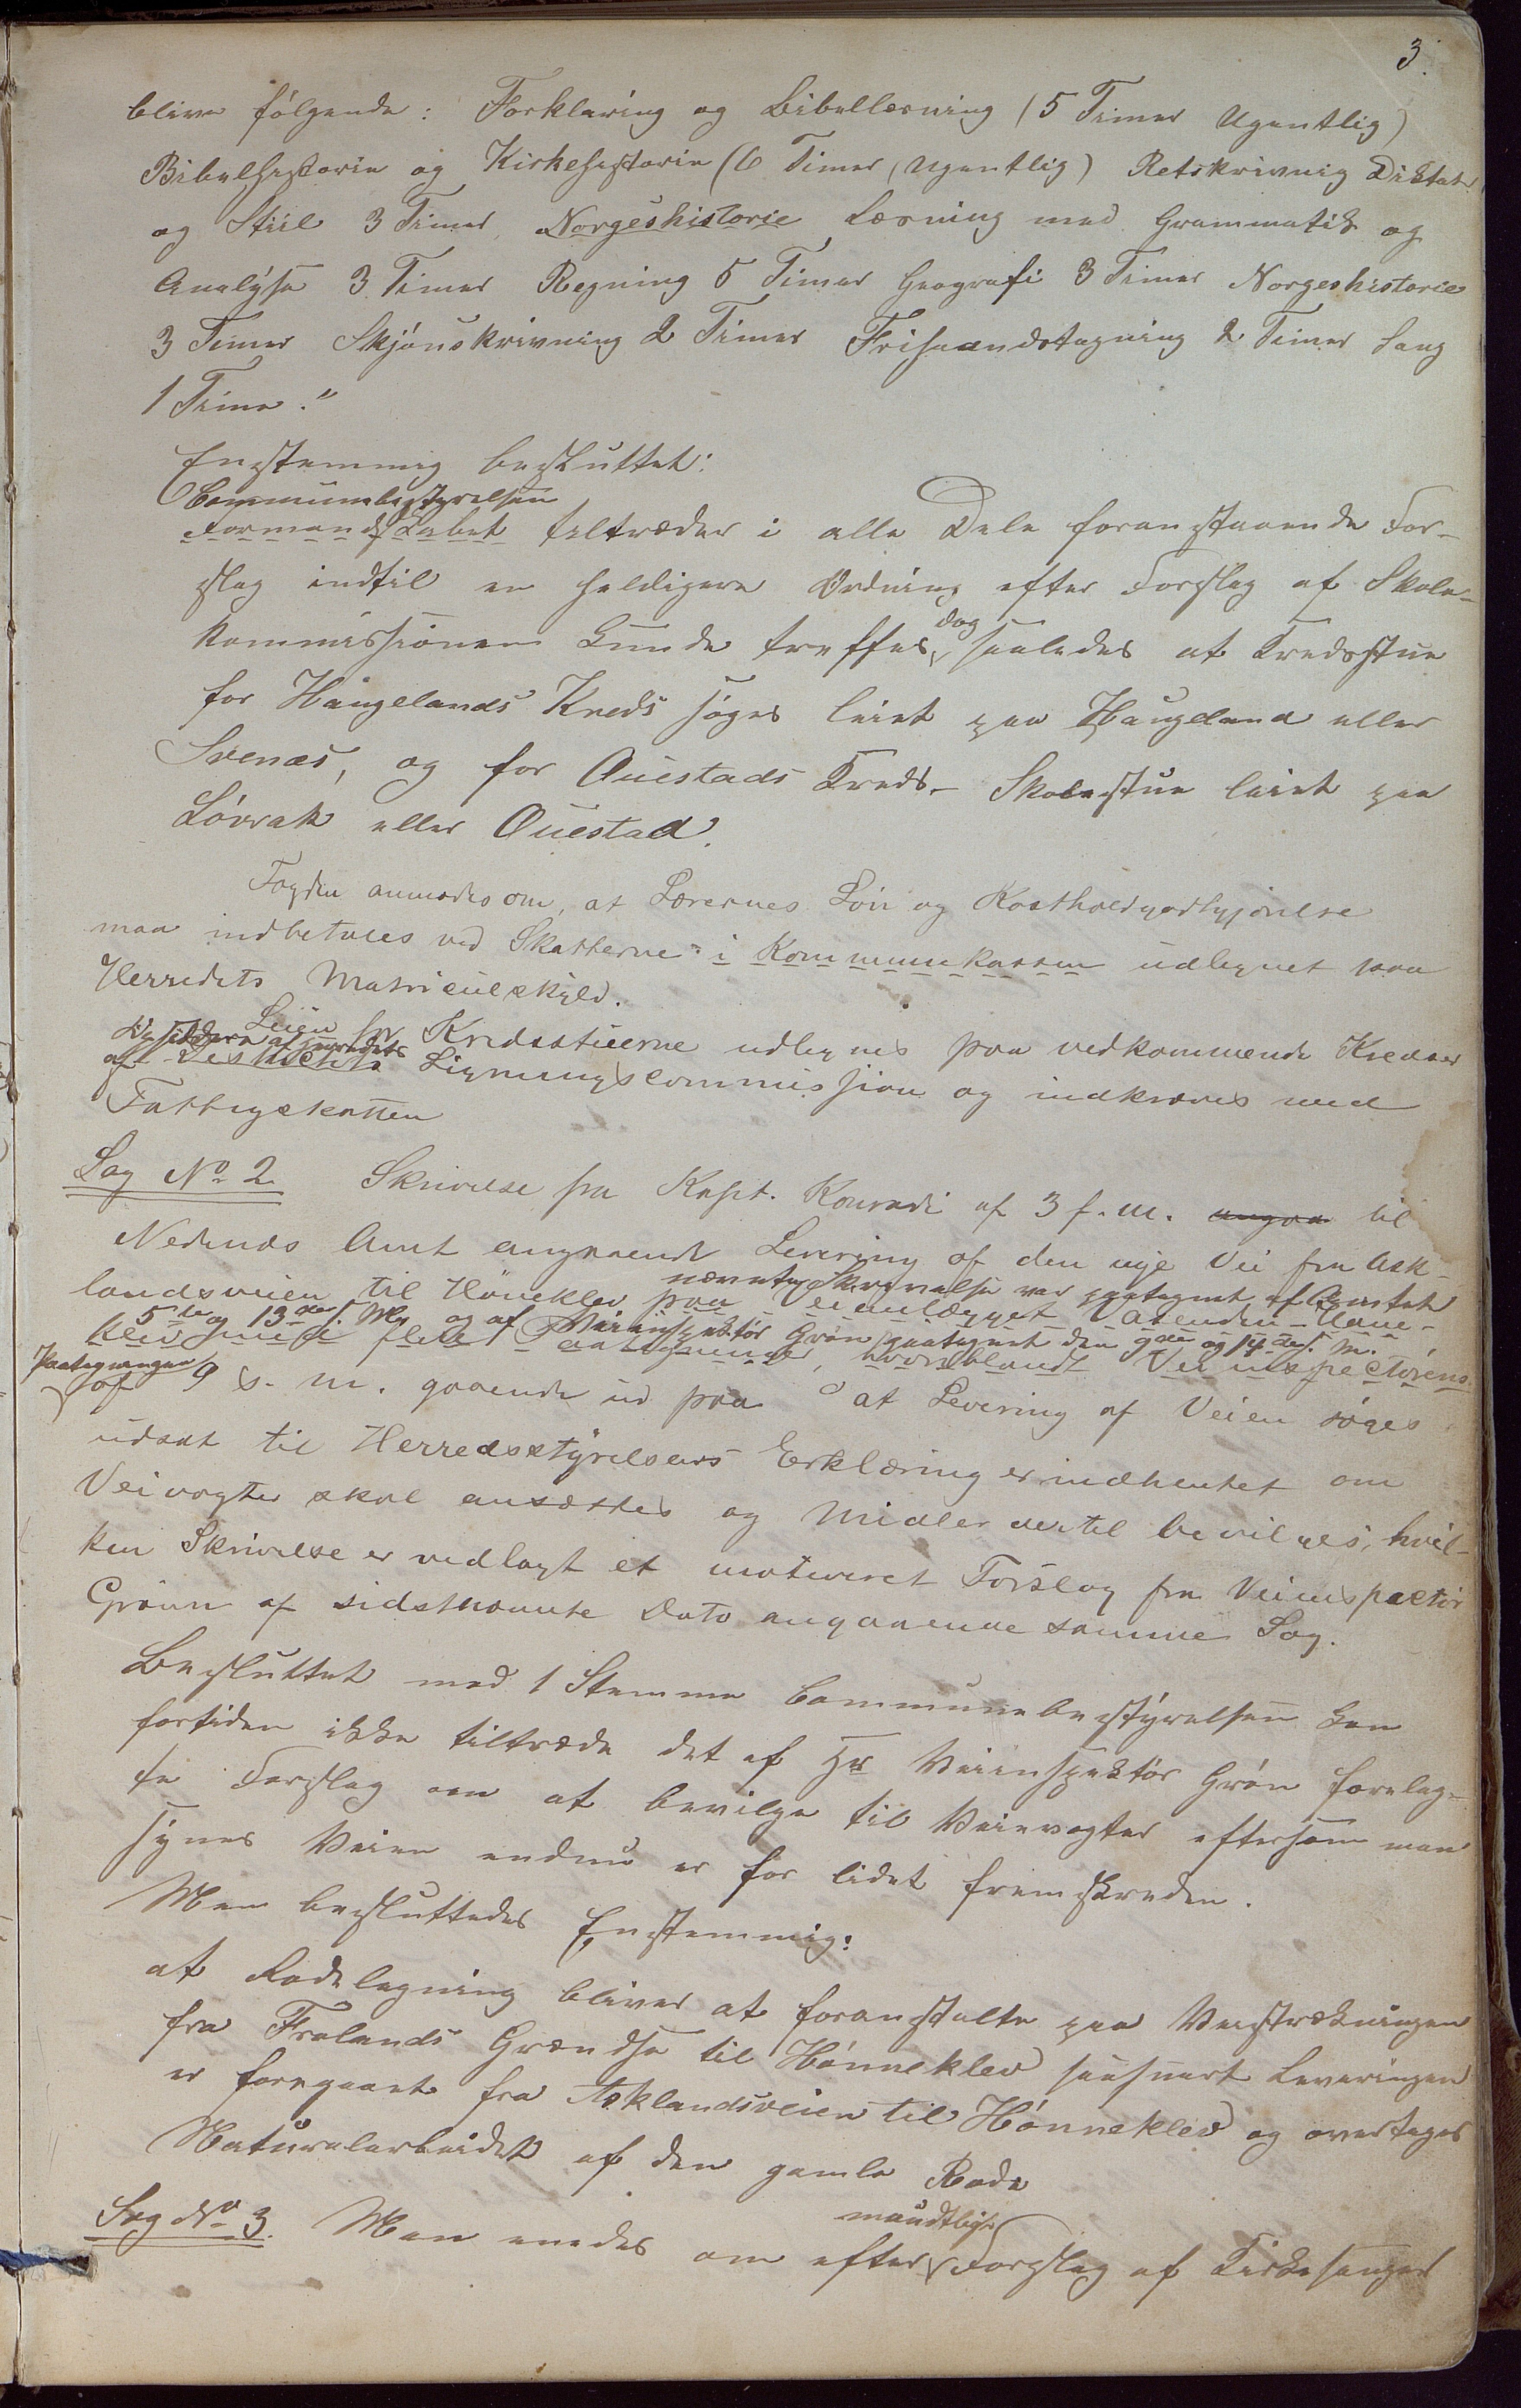 3.
blive følgende: Forklaring og Bibellæsning (5 Timer Ugentlig)
Bibelhistorie og Kirkehistorie (6 Timer, Ugentlig) Retskrivnig Diktat
og Stiil 3 Timer, Norgeshistorie Læsning med Grammatik og
Analyse 3 Timer Regning 5 Timer Geografi 3 Timer Norgeshistorie
3 Timer Skjönskrivning 2 Timer Frihaandstegning 2 Timer Sang
1 Time."
Enstemmig besluttet:
Communebestyrelsen
Formandskabet tiltræder i alle Dele foranstaaende For-
slag indtil en heldigere Ordning efter Forslag af Skole-
kommissionen kunde treffes, dog saaledes at Kredsstue
for Haugelands Kreds söges leiet paa Haugeland eller
Svenæs, og for Ouestads Kreds- Skolestue leiet paa
Lövrak eller Ouestad.
Fogden anmodes om, at Lærernes Lön og Kostholdgodtgjörelse
maa indbetales ved Skatterne i Kommunekassen udlignet paa
Herredets Matricuulskyld.
Leien for Kredsstuerne udlignes paa vedkommende Kredser
af Herredets Ligningscommission og indkræves med
Fattigskatten
Sag No 2. Skrivelse fra Kapt. Konradi af 3 f. M. angaa til
Nedenæs Amt angaaende Levering af den nye Vei fra Ask-
landsveien til Höneklev
nævnte Skrivelse var paategnet af Amtet
5te og 13de f. M. og af Veiinspektör Grön paategnet den 9de og 14de f. M.
Paategningen
af 9 s. M. gaaende ud paa at Levering af Veien söges
udsat til Herredsstyrelsens Erklæring er indhentet om
Veivogter skal ansættes og Midler dertil bevilges, hvil-
ken Skrivelse er vedlagt et motiveret Forslag fra Veiinspectör
Grönn af sidstnævnte Dato angaaende samme Sag.
Besluttet med 1 Stemme Communebestyrelsen kan
fortiden ikke tiltræde det af Hr Veiinspektör Grön forelag-
te Forslag om at bevilge til Veivogter eftersom man
synes Veien endnu er for lidet fremskreden.
Men besluttedes Enstemmig:
at Rodelegning bliver at foranstalte paa Veistrækningen
fra Frolands Grændse til Hönneklev saasnart Leveringen
er foregaaet fra Asklandsveien til Hönneklev og overtages
Naturalarbeidet af den gamle Rode
Sag No 3. Man enedes om efter mundtligt Forslag af Kirkesanger